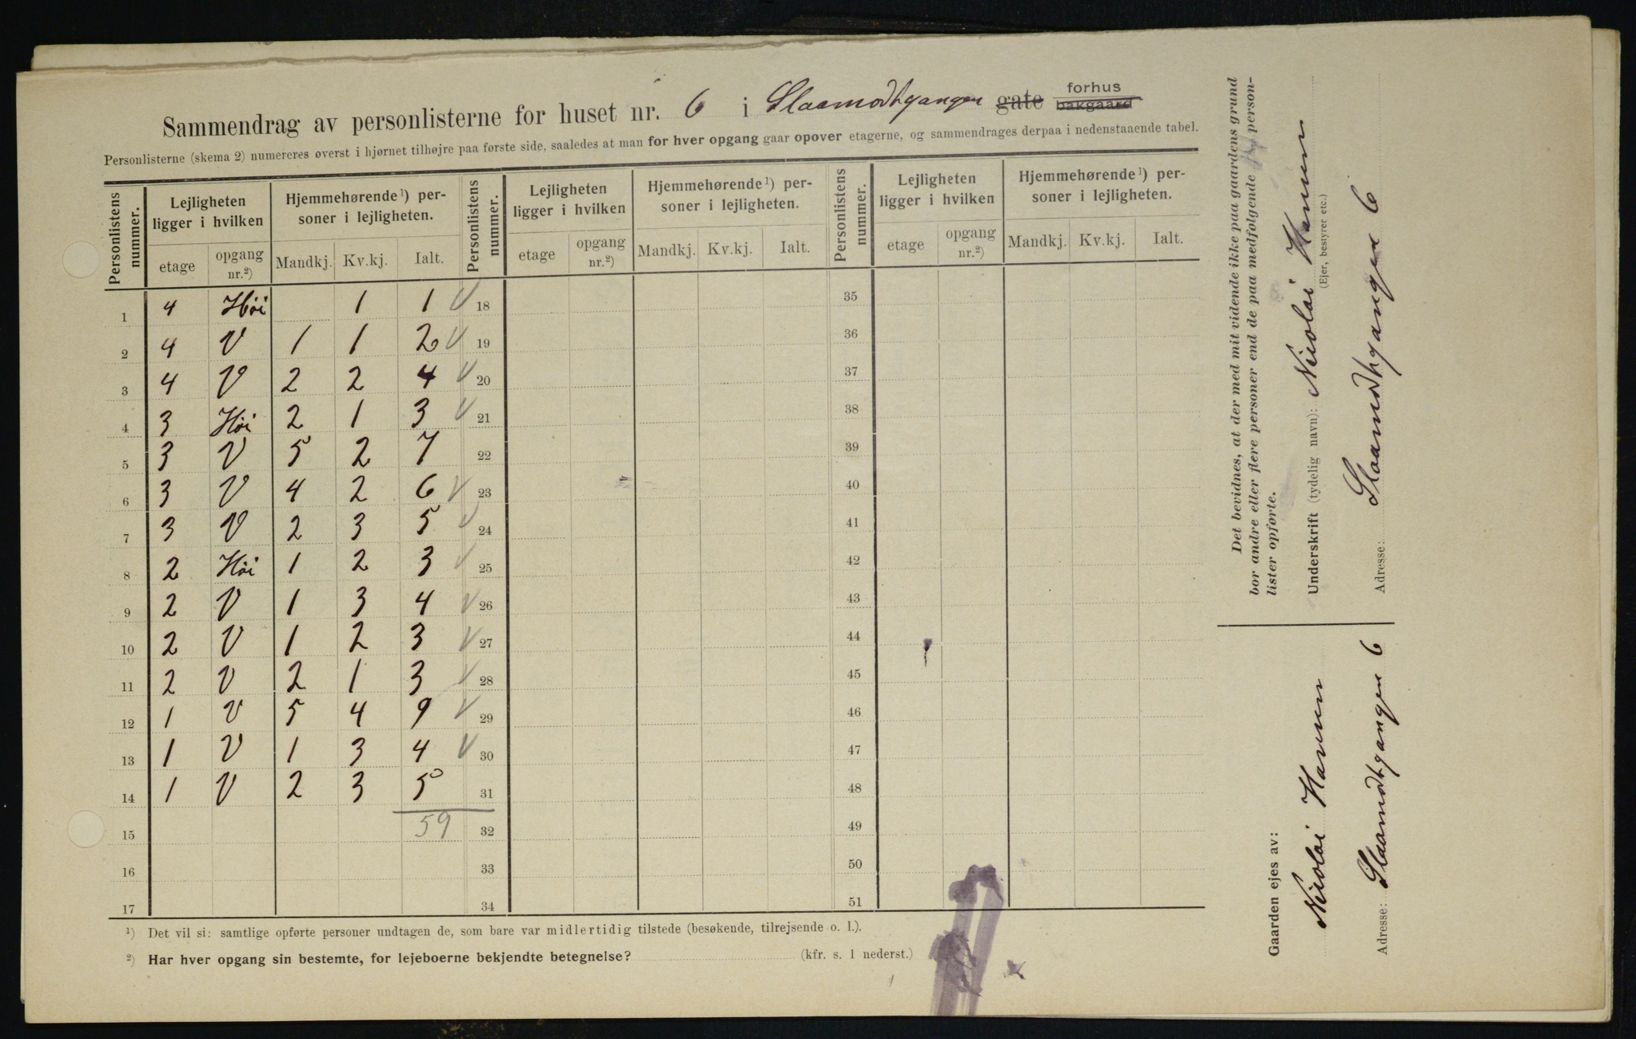 Sammendrag av personlisterne for huset nr. 6 i Slaamodtgangen gate forhus bakgaard
Personlisterne (skema 2) numereres øverst i hjørnet tilhøjre paa første side, saaledes at man for hver opgang gaar opover etagerne, og sammendrages derpaa i nedenstaaende tabel.
Personlistens nummer. Lejligheten ligger i hvilken Hjemmehørende ¹) personer i lejligheten. Personlistens nummer. Lejligheten ligger i hvilken Hjemmehørende ¹) personer i lejligheten. Personlistens nummer. Lejligheten ligger i hvilken Hjemmehørende ¹) personer i lejligheten.
etage opgang nr.²) Mandkj. Kv.kj. Ialt. etage opgang nr.²) Mandkj. Kv.kj. Ialt. etage opgang nr.²) Mandkj. Kv.kj. Ialt.
1 4 Høi 1 1 18 35
2 4 V 1 1 2 19 36
3 4 V 2 2 4 20 37
4 3 Høi 2 1 3 21 38
5 3 V 5 2 7 22 39
6 3 V 4 2 6 23 40
7 3 V 2 3 5 24 41
8 2 Høi 1 2 3 25 42
9 2 V 1 3 4 26 43
10 2 V 1 2 3 27 44
11 2 V 2 1 3 28 45
12 1 V 5 4 9 29 46
13 1 V 1 3 4 30 47
14 1 V 2 3 5 31 48
15 59 32 49
16 33 50
17 34 51
¹) Det vil si: samtlige opførte personer undtagen de, som bare var midlertidig tilstede (besøkende, tilrejsende o. l.).
²) Har hver opgang sin bestemte, for lejeboerne bekjendte betegnelse? (kfr. s. 1 nederst.)
Det bevidnes, at der med mit vidende ikke paa gaardens grund
bor andre eller flere personer end de paa medfølgende person-
lister opførte.
Underskrift (tydelig navn): Nicolai Hansen
(Ejer, bestyrer etc.)
Adresse: Slaamodtgangen 6
Gaarden ejes av:
Nicolai Hansen
Adresse: Slaamodtgangen 6